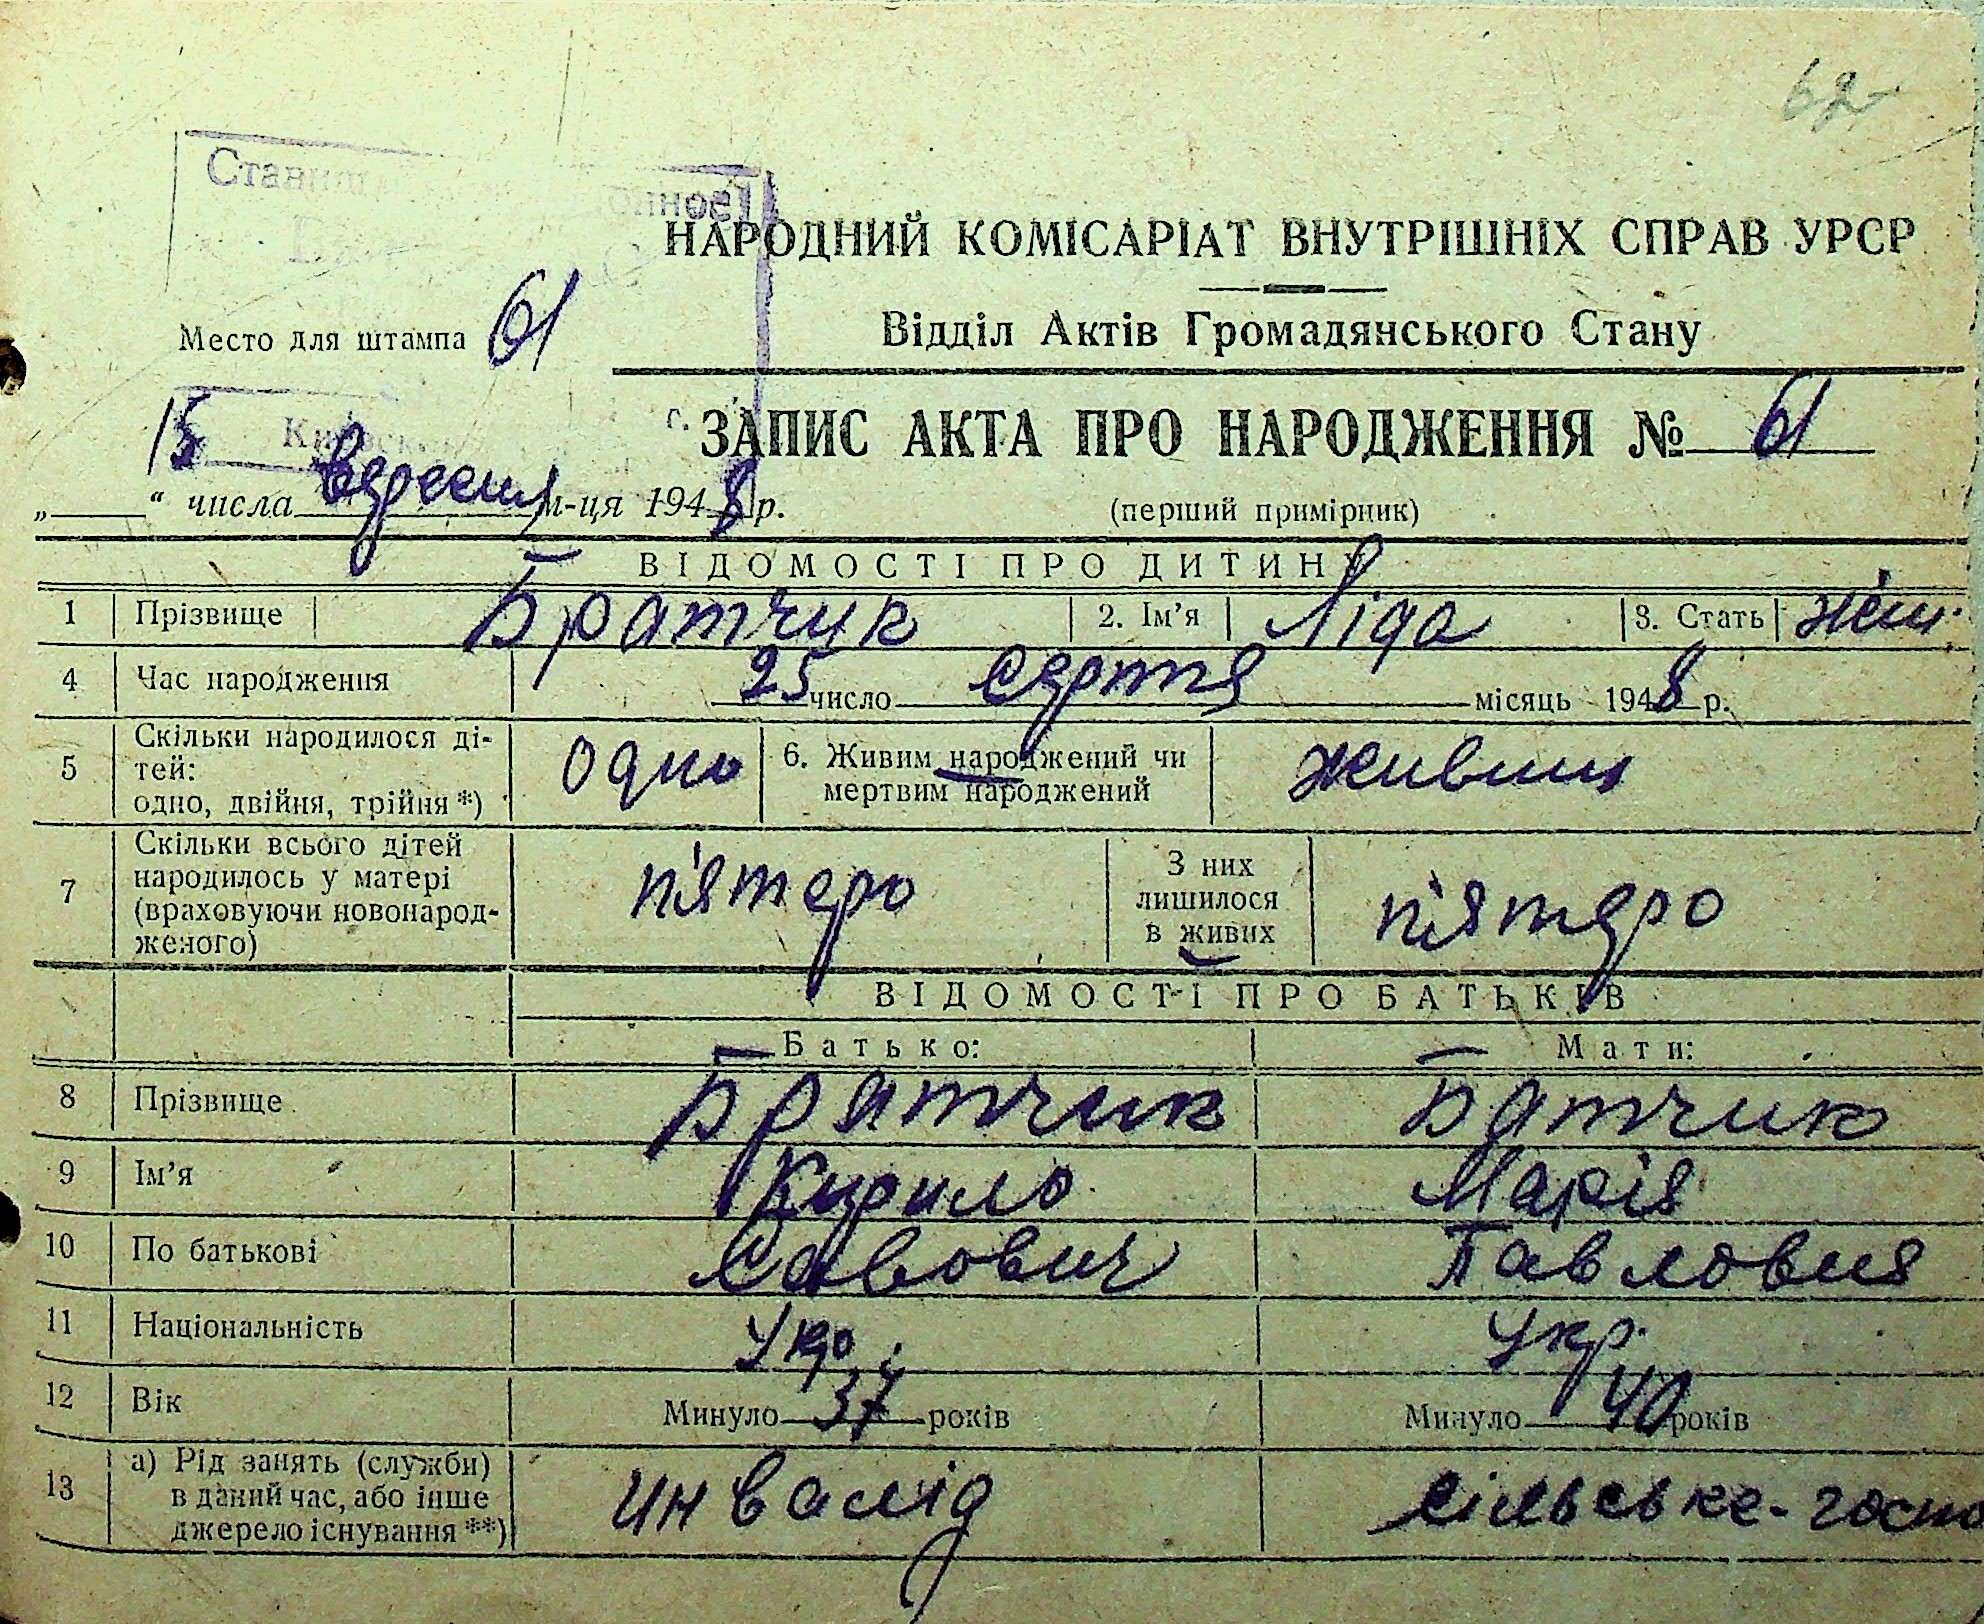 62
НАРОДНИЙ КОМІСАРІАТ ВНУТРІШНІХ СПРАВ УРСР
Место для штампа 61
Відділ Актів Громадянського Стану
ЗАПИС АКТА ПРО НАРОДЖЕННЯ № 61
„15“ числа вересня м-ця 1948 р.
(перший примірник)
ВІДОМОСТІ ПРО ДИТИНУ
1 Прізвище Братчик 2. Ім’я Ліда 3. Стать жін.
4 Час народження 25 число серпня місяць 1948 р.
5 Скільки народилося ді-
тей:
одно, двійня, трійня *) одно 6. Живим народжений чи
мертвим народжений живим
7 Скільки всього дітей
народилось у матері
(враховуючи новонарод-
женого) п'ятеро З них
лишилося
в живих п'ятеро
ВІДОМОСТІ ПРО БАТЬКІВ
Батько: Мати:
8 Прізвище Братчик Батчик
9 Ім’я Кирило Марія
10 По батькові Савович Павловня
11 Національність Укр. Укр.
12 Вік Минуло 37 років Минуло 40 років
13 а) Рід занять (служби)
в даний час, або інше
джерело існування **) инвалід сільське-госпо